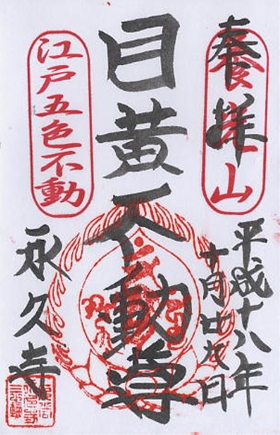 奉拝
養光山
平成十八年
十月廿九日
目黄不動尊
江戸五色不動
永久寺